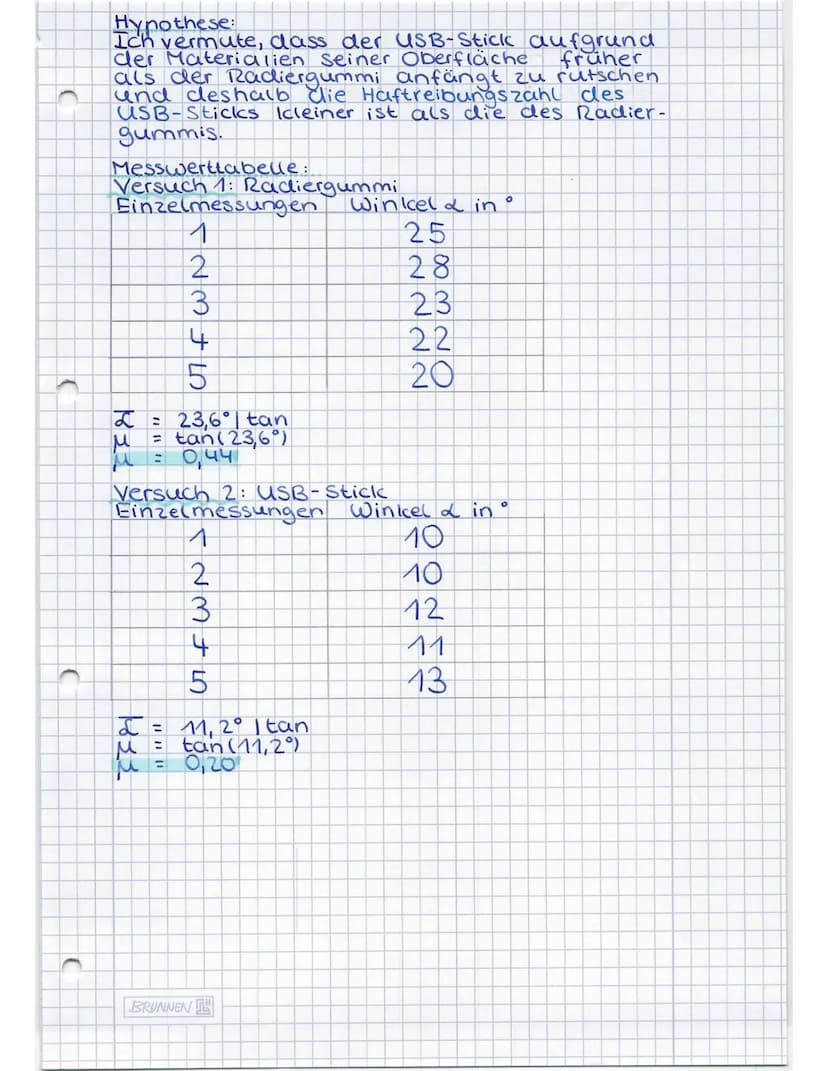 Hypothese:
Ich vermute, dass der USB-Stick aufgrund
der Materialien seiner Oberfläche früher
als der Radiergummi anfängt zu rutschen
und deshalb die Haftreibungszahl des
USB-Sticks kleiner ist als die des Radier-
gummis.
Messwerttabelle:
Versuch 1: Radiergummi
Einzelmessungen Winkel α in °
1 25
2 28
3 23
4 22
5 20
α̅ = 23,6° | tan
μ = tan(23,6°)
μ = 0,44
Versuch 2: USB-Stick
Einzelmessungen Winkel α in °
1 10
2 10
3 12
4 11
5 13
α̅ = 11,2° | tan
μ = tan(11,2°)
μ = 0,20
BRUNNEN